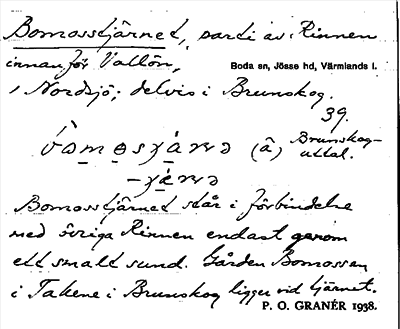 Bomosstjärnet, parti av Rinnen
innanför Vallön,
Boda sn, Jösse hd, Värmlands l.
i Nordsjö; delvis i Brunskog.
39.
(â) Brunskog-
uttal.
Bomosstjärnet står i förbindelse
med övriga Rinnen endast genom
ett smalt sund. Gården Bomossen
i Takene i Brunskog ligger vid tjärnet.
P. O. GRANÉR 1938.